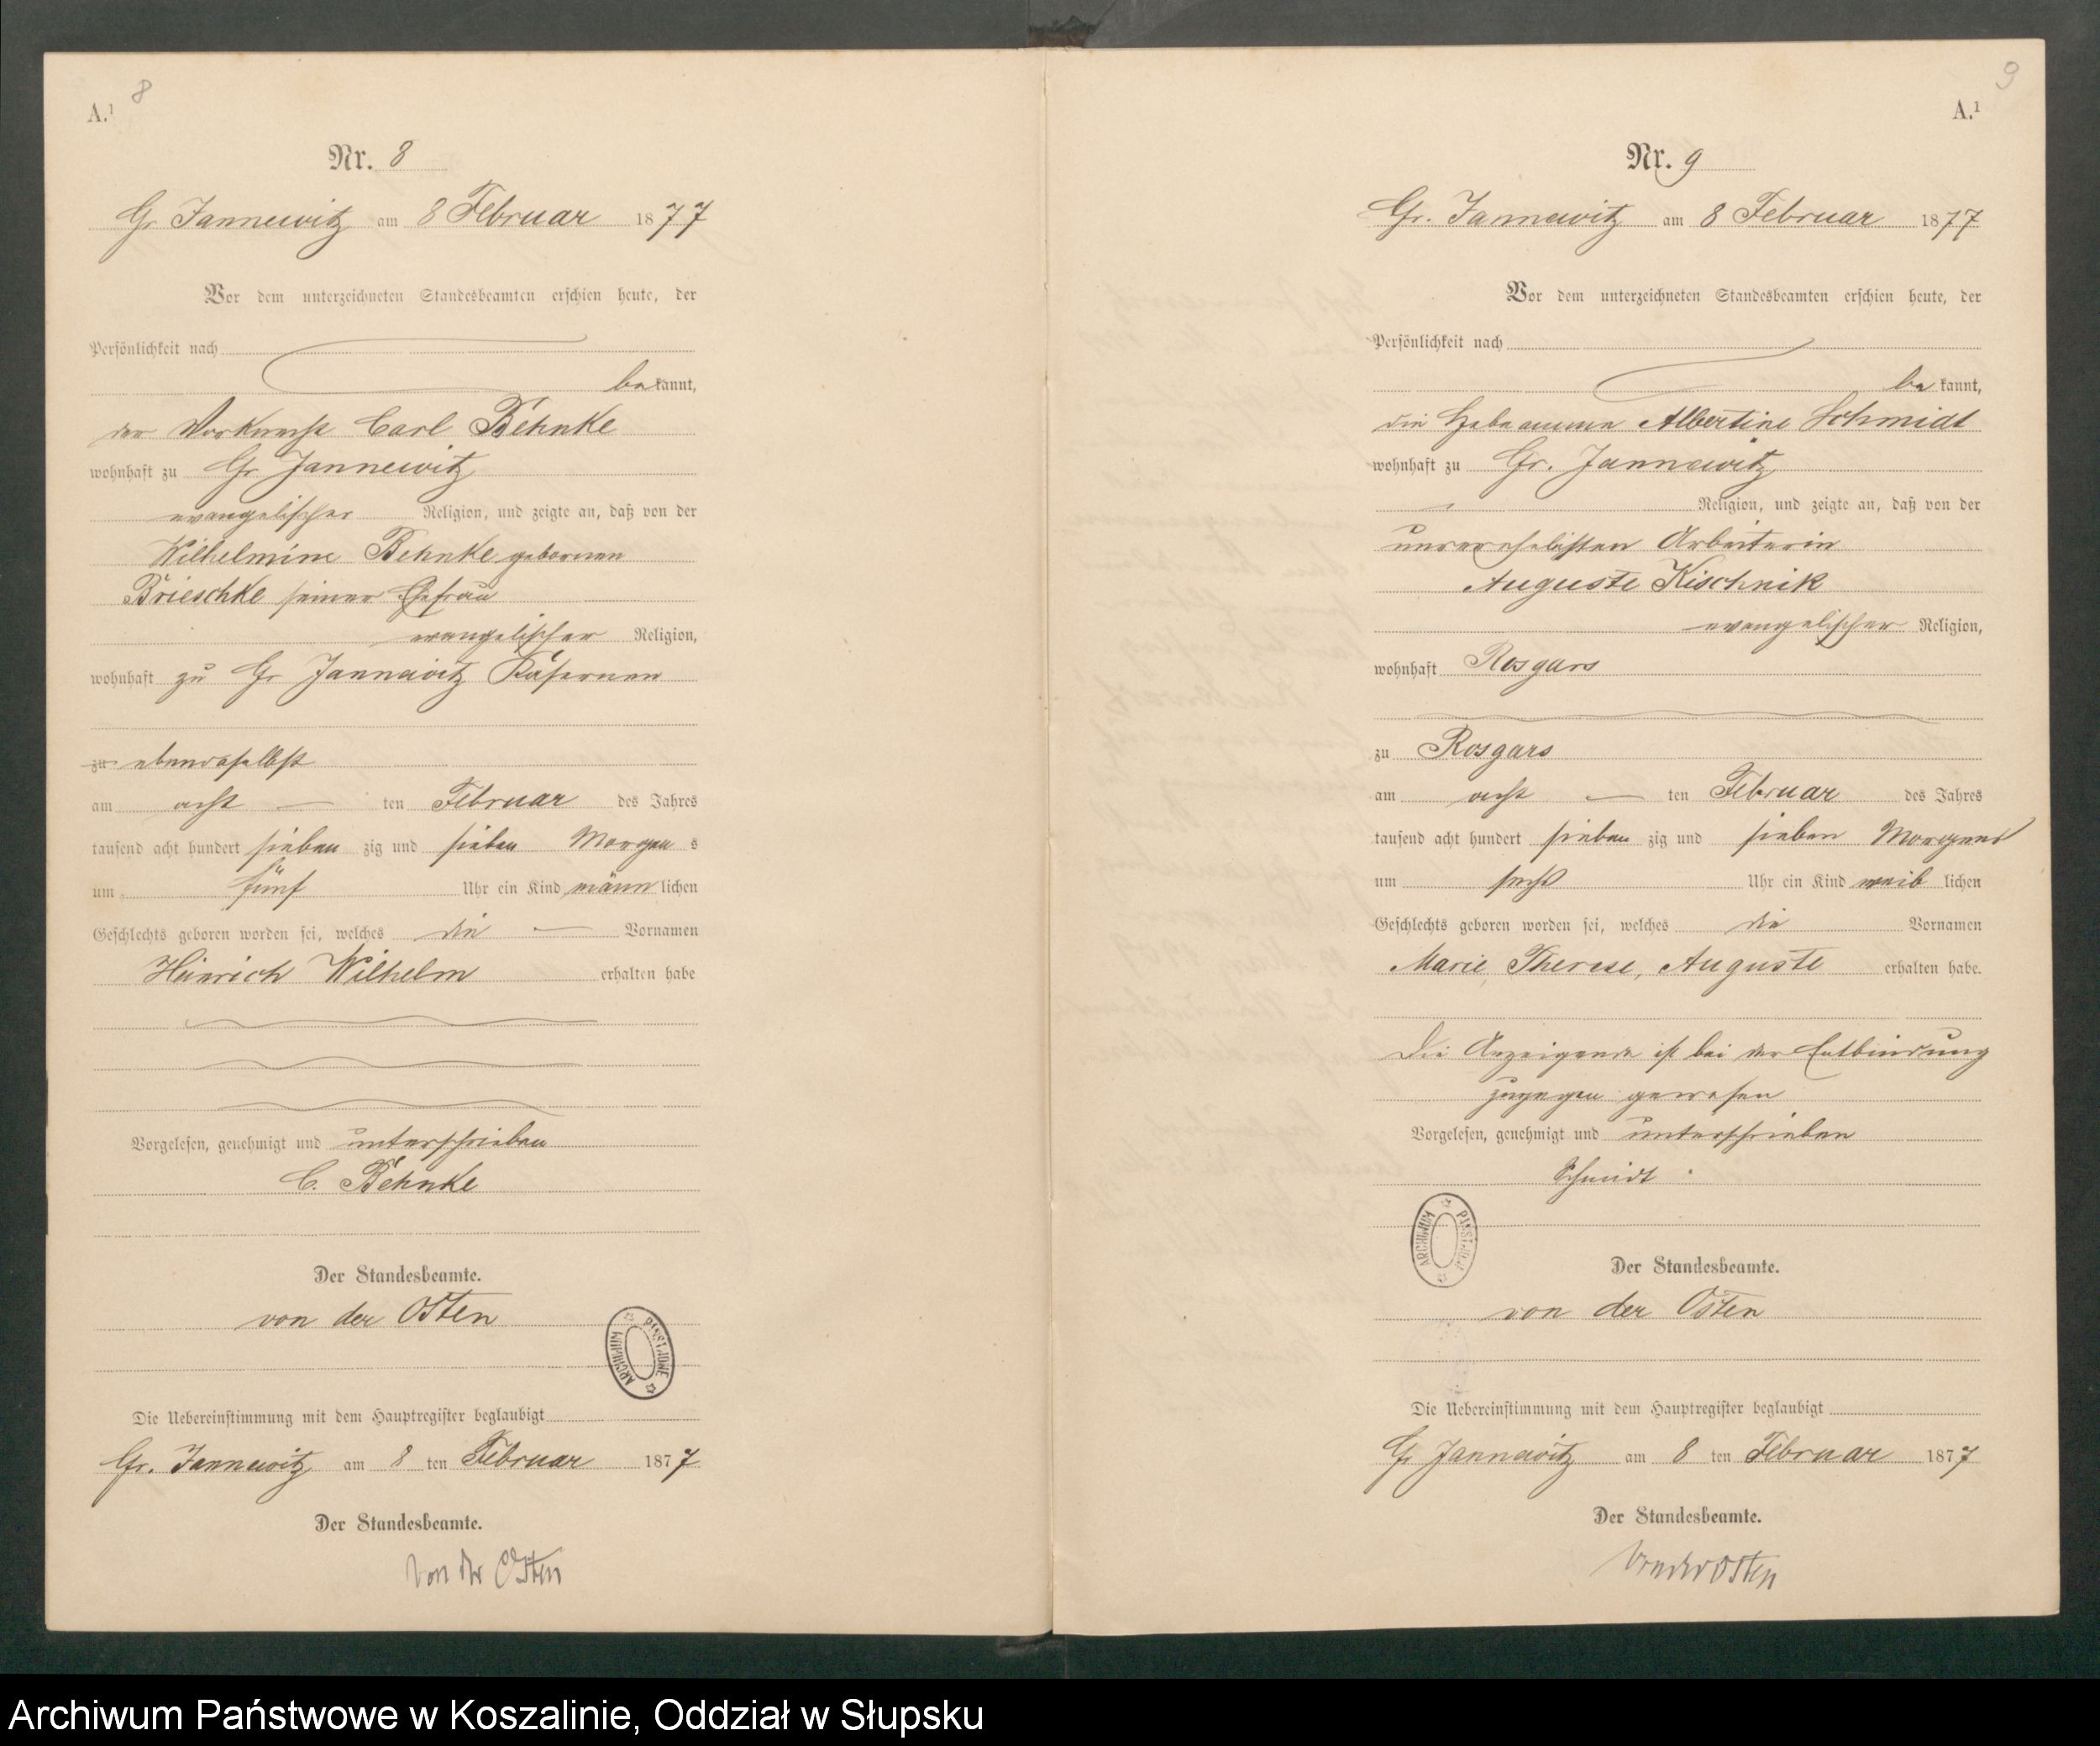 8
A.¹
Nr. 8
Gr Jannewitz am 8 Februar 1877
Vor dem unterzeichneten Standesbeamten erschien heute, der
Persönlichkeit nach
bekannt,
der Vorknecht Carl Behnke
wohnhaft zu Gr Jannewitz
evangelischer Religion, und zeigte an, daß von der
Wilhelmine Behnke gebornen
Brieschke seiner Ehefrau
evangelischer Religion,
wohnhaft zu Gr Jannewitz Kasernen
zu ebendaselbst
am acht ten Februar des Jahres
tausend acht hundert sieben zig und sieben Morgens
um fünf Uhr ein Kind männlichen
Geschlechts geboren worden sei, welches die Vornamen
Heinrich Wilhelm erhalten habe
Vorgelesen, genehmigt und unterschrieben
C. Behnke
Der Standesbeamte.
von der Osten
ARCHIWUM PAŃSTWOWE
Die Uebereinstimmung mit dem Hauptregister beglaubigt
Gr. Jannewitz am 8 ten Februar 1877
Der Standesbeamte.
von der Osten
9
A.¹
Nr. 9
Gr. Jannewitz am 8 Februar 1877
Vor dem unterzeichneten Standesbeamten erschien heute, der
Persönlichkeit nach
bekannt,
die Hebeamme Albertine Schmidt
wohnhaft zu Gr. Jannewitz
Religion, und zeigte an, daß von der
unverehelichten Arbeiterin
Auguste Kischnik
evangelischer Religion,
wohnhaft Rosgars
zu Rosgars
am acht ten Februar des Jahres
tausend acht hundert sieben zig und sieben Morgens
um sechs Uhr ein Kind weiblichen
Geschlechts geboren worden sei, welches die Vornamen
Marie, Therese, Auguste erhalten habe.
Die Anzeigende ist bei der Entbindung
zugegen gewesen
Vorgelesen, genehmigt und unterschrieben
Schmidt
ARCHIWUM PAŃSTWOWE
Der Standesbeamte.
von der Osten
Die Uebereinstimmung mit dem Hauptregister beglaubigt
Gr Jannewitz am 8 ten Februar 1877
Der Standesbeamte.
von der Osten
Archiwum Państwowe w Koszalinie, Oddział w Słupsku